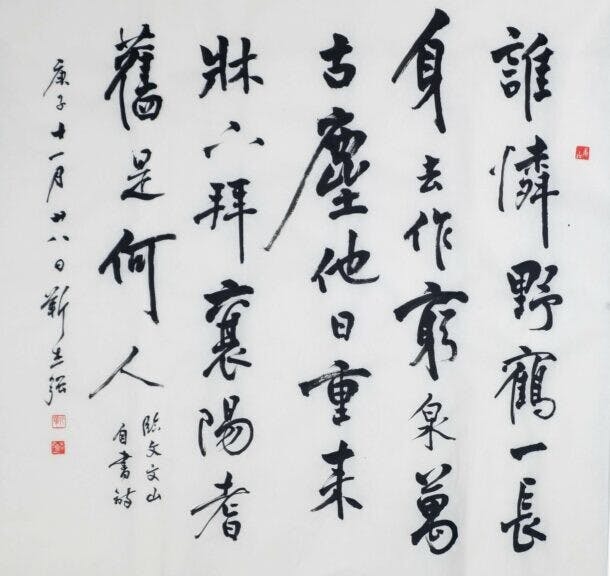 誰憐野鶴一長
身去作窮泉萬
古塵他日重来
牀下拜襄陽耆
舊是何人
臨文文山
自書詩
庚子十一月廿八日靳志强